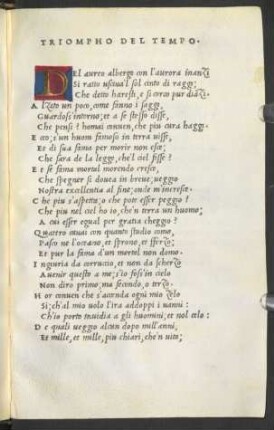 TRIOMPHO DEL TEMPO.
Del aureo albergo con l'aurora inanzi
Si ratto usciua'l sol cinto di raggi;
Che detto haresti, e si corcò pur dianzi.
Alzato un poco, come fanno i saggi,
Guardossi intorno; et a se stesso disse,
Che pensi? homai conuen, che piu cura haggi.
Ecco; s'un huom famoso in terra uisse,
Et di sua fama per morir non esce;
Che sara de la legge, che'l ciel fisse?
Et se fama mortal morendo cresce,
Che spegner si doueа in breue; ueggio
Nostra excellentia al fine; onde m'incresce.
Che piu s'aspetta; o che pote esser peggio?
Che piu nel ciel ho io, che'n terra un huomo;
A cui esser egual per gratia cheggio?
Quattro caual con quanto studio como,
Pasco ne l'oceano, et sprono, et sferzo;
Et pur la fama d'un mortal non domo.
Ingiuria da corruccio, et non da scherzo
Auenir questo a me; s'io foss'in cielo
Non dirò primo, ma secondo, o terzo.
Hor conuen che s'accenda ogni mio zelo
Si; ch'al mio uolo l'ira addoppi i uanni:
Ch'io porto inuidia a gli huomini; et nol celo:
De quali ueggio alcun dopo mill'anni,
Et mille, et mille, piu chiari, che'n uita;